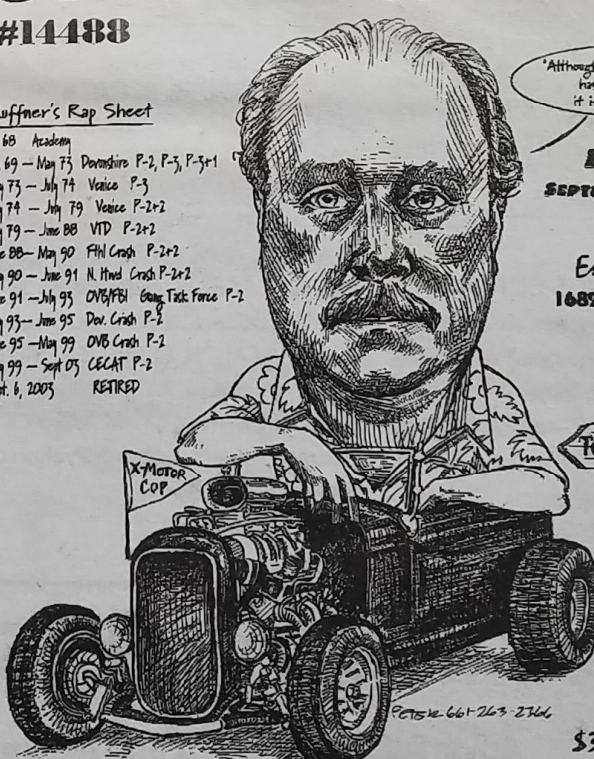 #14488
uffner's Rap Sheet
68 Academy
69 — May 73 Devonshire P-2, P-3, P-3+1
y 73 — July 74 Venice P-3
y 74 — July 79 Venice P-2+2
y 79 — June 88 VTD P-2+2
e 88— May 90 Fthl Crash P-2+2
y 90 — June 91 N. Hwd Crash P-2+2
e 91 — July 93 OVB/FBI Gang Task Force P-2
y 93 — June 95 Dev. Crash P-2
e 95 — May 99 OVB Crash P-2
y 99 — Sept 03 CECAT P-2
t. 6, 2003 RETIRED
"Althoug
ha
it i
SEPT
1689
X-MOTOR
COP
661-263-2366
$3